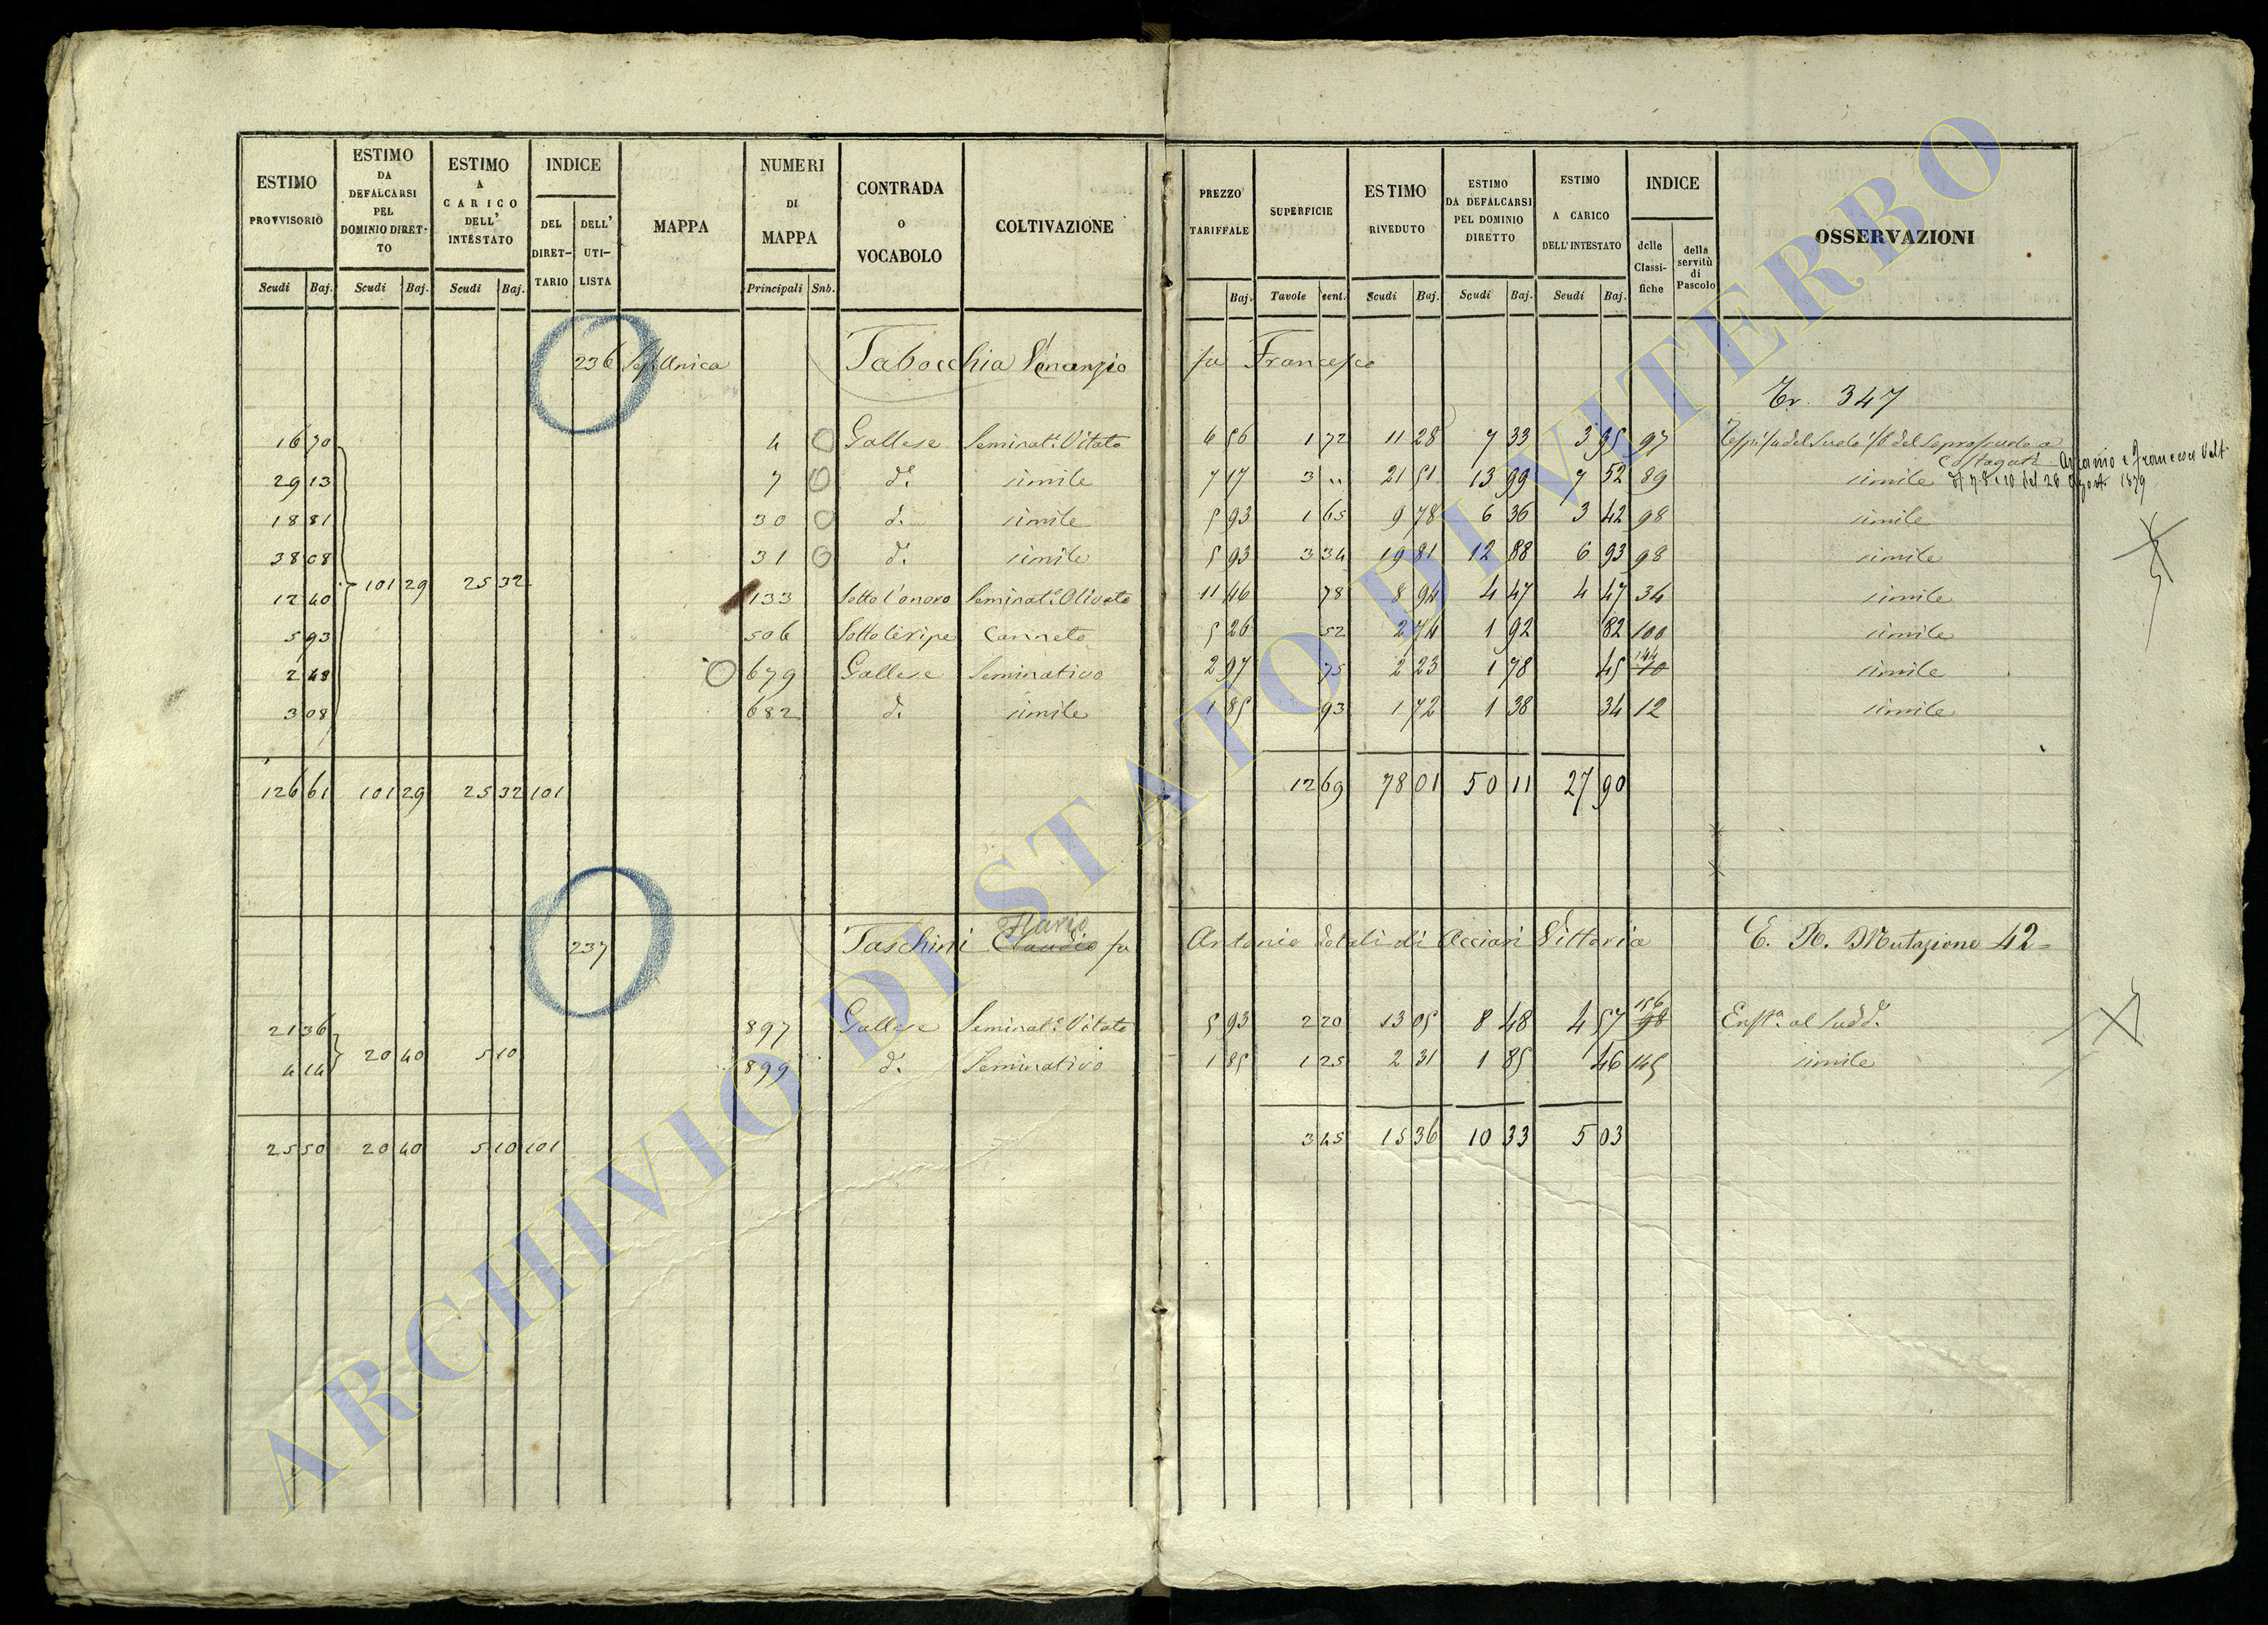 ESTIMO PROVVISORIO Scudi Baj.
ESTIMO DA DEFALCARSI PEL DOMINIO DIRETTO Scudi Baj.
ESTIMO A CARICO DELL' INTESTATO Scudi Baj.
INDICE DEL DIRETTARIO DELL' UTILISTA
MAPPA
NUMERI DI MAPPA Principali Sub.
CONTRADA o VOCABOLO
COLTIVAZIONE
PREZZO TARIFFALE Baj.
SUPERFICIE Tavole cent.
ESTIMO RIVEDUTO Scudi Baj.
ESTIMO DA DEFALCARSI PEL DOMINIO DIRETTO Scudi Baj.
ESTIMO A CARICO DELL' INTESTATO Scudi Baj.
INDICE delle Classifiche della servitù di Pascolo
OSSERVAZIONI
236 Unica Tabocchia Venanzio fu Francesco
Tr. 347
16 70 4 Gallese Seminat.° Vitato 6 56 1 72 11 28 7 33 3 95 97 a
Antonio e Francesco
29 13 7 d.° simile 7 17 3 " 21 51 13 99 7 52 89 simile 1879
18 81 30 d.° simile 5 93 1 65 9 78 6 36 3 42 98 simile
38 08 31 d.° simile 5 93 3 34 19 81 12 88 6 93 98 simile
101 29 25 32
12 40 133 Seminat.° Olivato 11 46 78 8 94 4 47 4 47 34 simile
5 93 506 Sotto le ripe Canneto 5 26 52 2 74 1 92 82 100 simile
2 48 679 Gallese Seminativo 2 97 75 2 23 1 78 45 144 simile
3 08 682 d.° simile 1 85 93 1 72 1 38 34 12 simile
126 61 101 29 25 32 101 12 69 78 01 50 11 27 90
Flavio
237 Taschini Claudio fu Antonio dotali di Acciari Vittoria E. R. Mutazione 42=
21 36 897 Gallese Seminat.° Vitato 5 93 2 20 13 05 8 48 4 57 156 98 Enf.ta al Sudd.°
20 40 5 10
4 14 899 d.° Seminativo 1 85 1 25 2 31 1 85 46 145 simile
25 50 20 40 5 10 101 3 45 15 36 10 33 5 03
ARCHIVIO DI STATO DI VITERBO